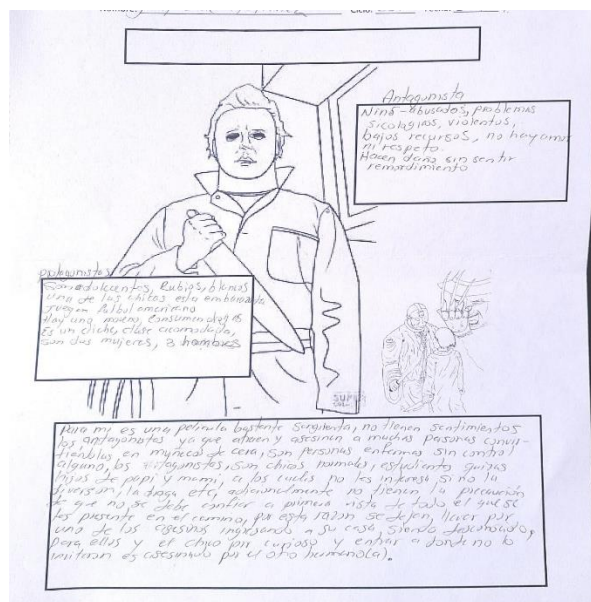 Antagonista
Niños abusados, problemas
sicologicos, violentos,
bajos recursos, no hay amor
ni respeto.
Hacen daño sin sentir
remordimiento
protagonistas
Son adolecentes, Rubios, blancos
una de las chicas esta embarazada
juegan futbol americano
Hay uno moreno, consumen drogas
Es un cliche, clase acomodada,
son dos mujeres, 3 hombres
SUPER
Para mi es una pelicula bastante sangrienta, no tienen sentimientos
los antagonistas ya que atraen y asesinan a muchas personas convir-
tiendolos en muñecos de cera, son personas enfermas sin control
alguno, los son chicos normales, estudiantes quizas
hijos de papi y mami, a los cuales no les interesa si no la
diversion, la droga, etc, adicionalmente no tienen la precaución
de que no se debe confiar a primera vista de todo el que se
les presente en el camino, por esta razon se dejan llevar por
uno de los asesinos ingresando a su casa, siendo desconocido,
para ellos y el chico por curioso y entrar a donde no lo
invitaron es asesinado por el otro hermano(a).